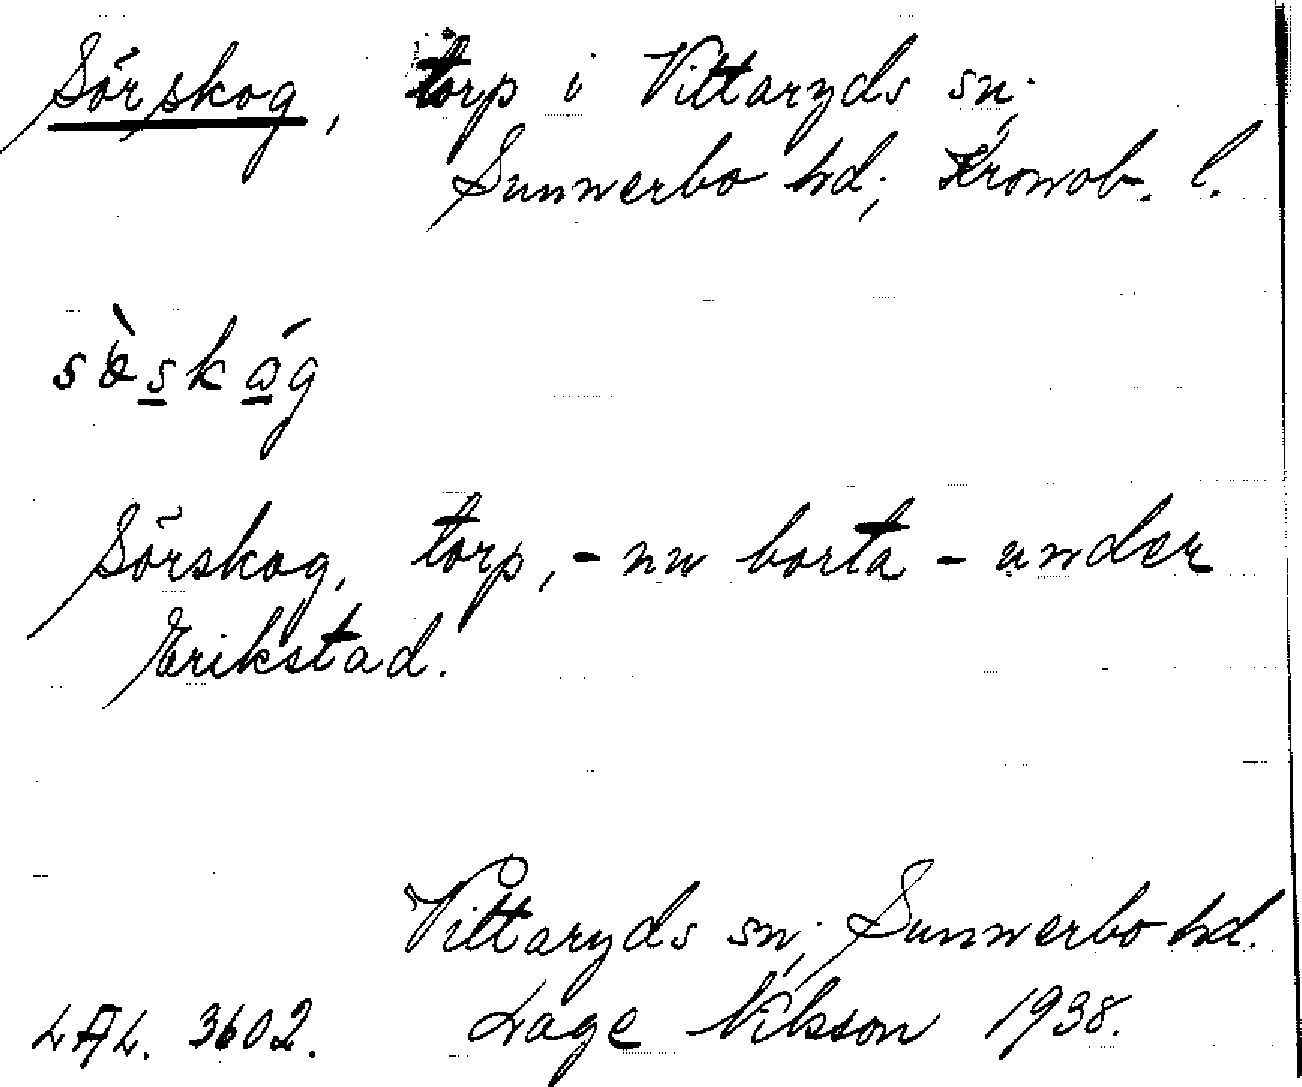 Sörskog, torp i Vittaryds sn;
Sunnerbo hd; Kronob. l.
sö̀skóg
Sörskog, torp, - nu borta - under
Erikstad.
Vittaryds sn; Sunnerbo hd.
LAL. 3602. Lage Nilsson 1938.